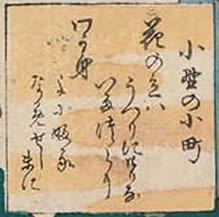 小野の小町
花の色ハ
うつりにけりな
いたつらに
わか身
よにふる
なかめせしまに